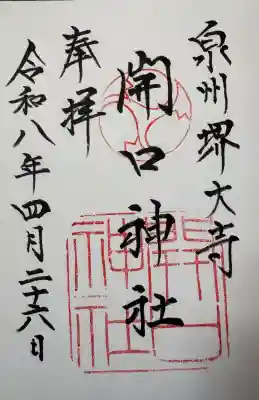 泉州堺大寺
開口神社
奉拝
令和八年四月二十六日
開口
神社